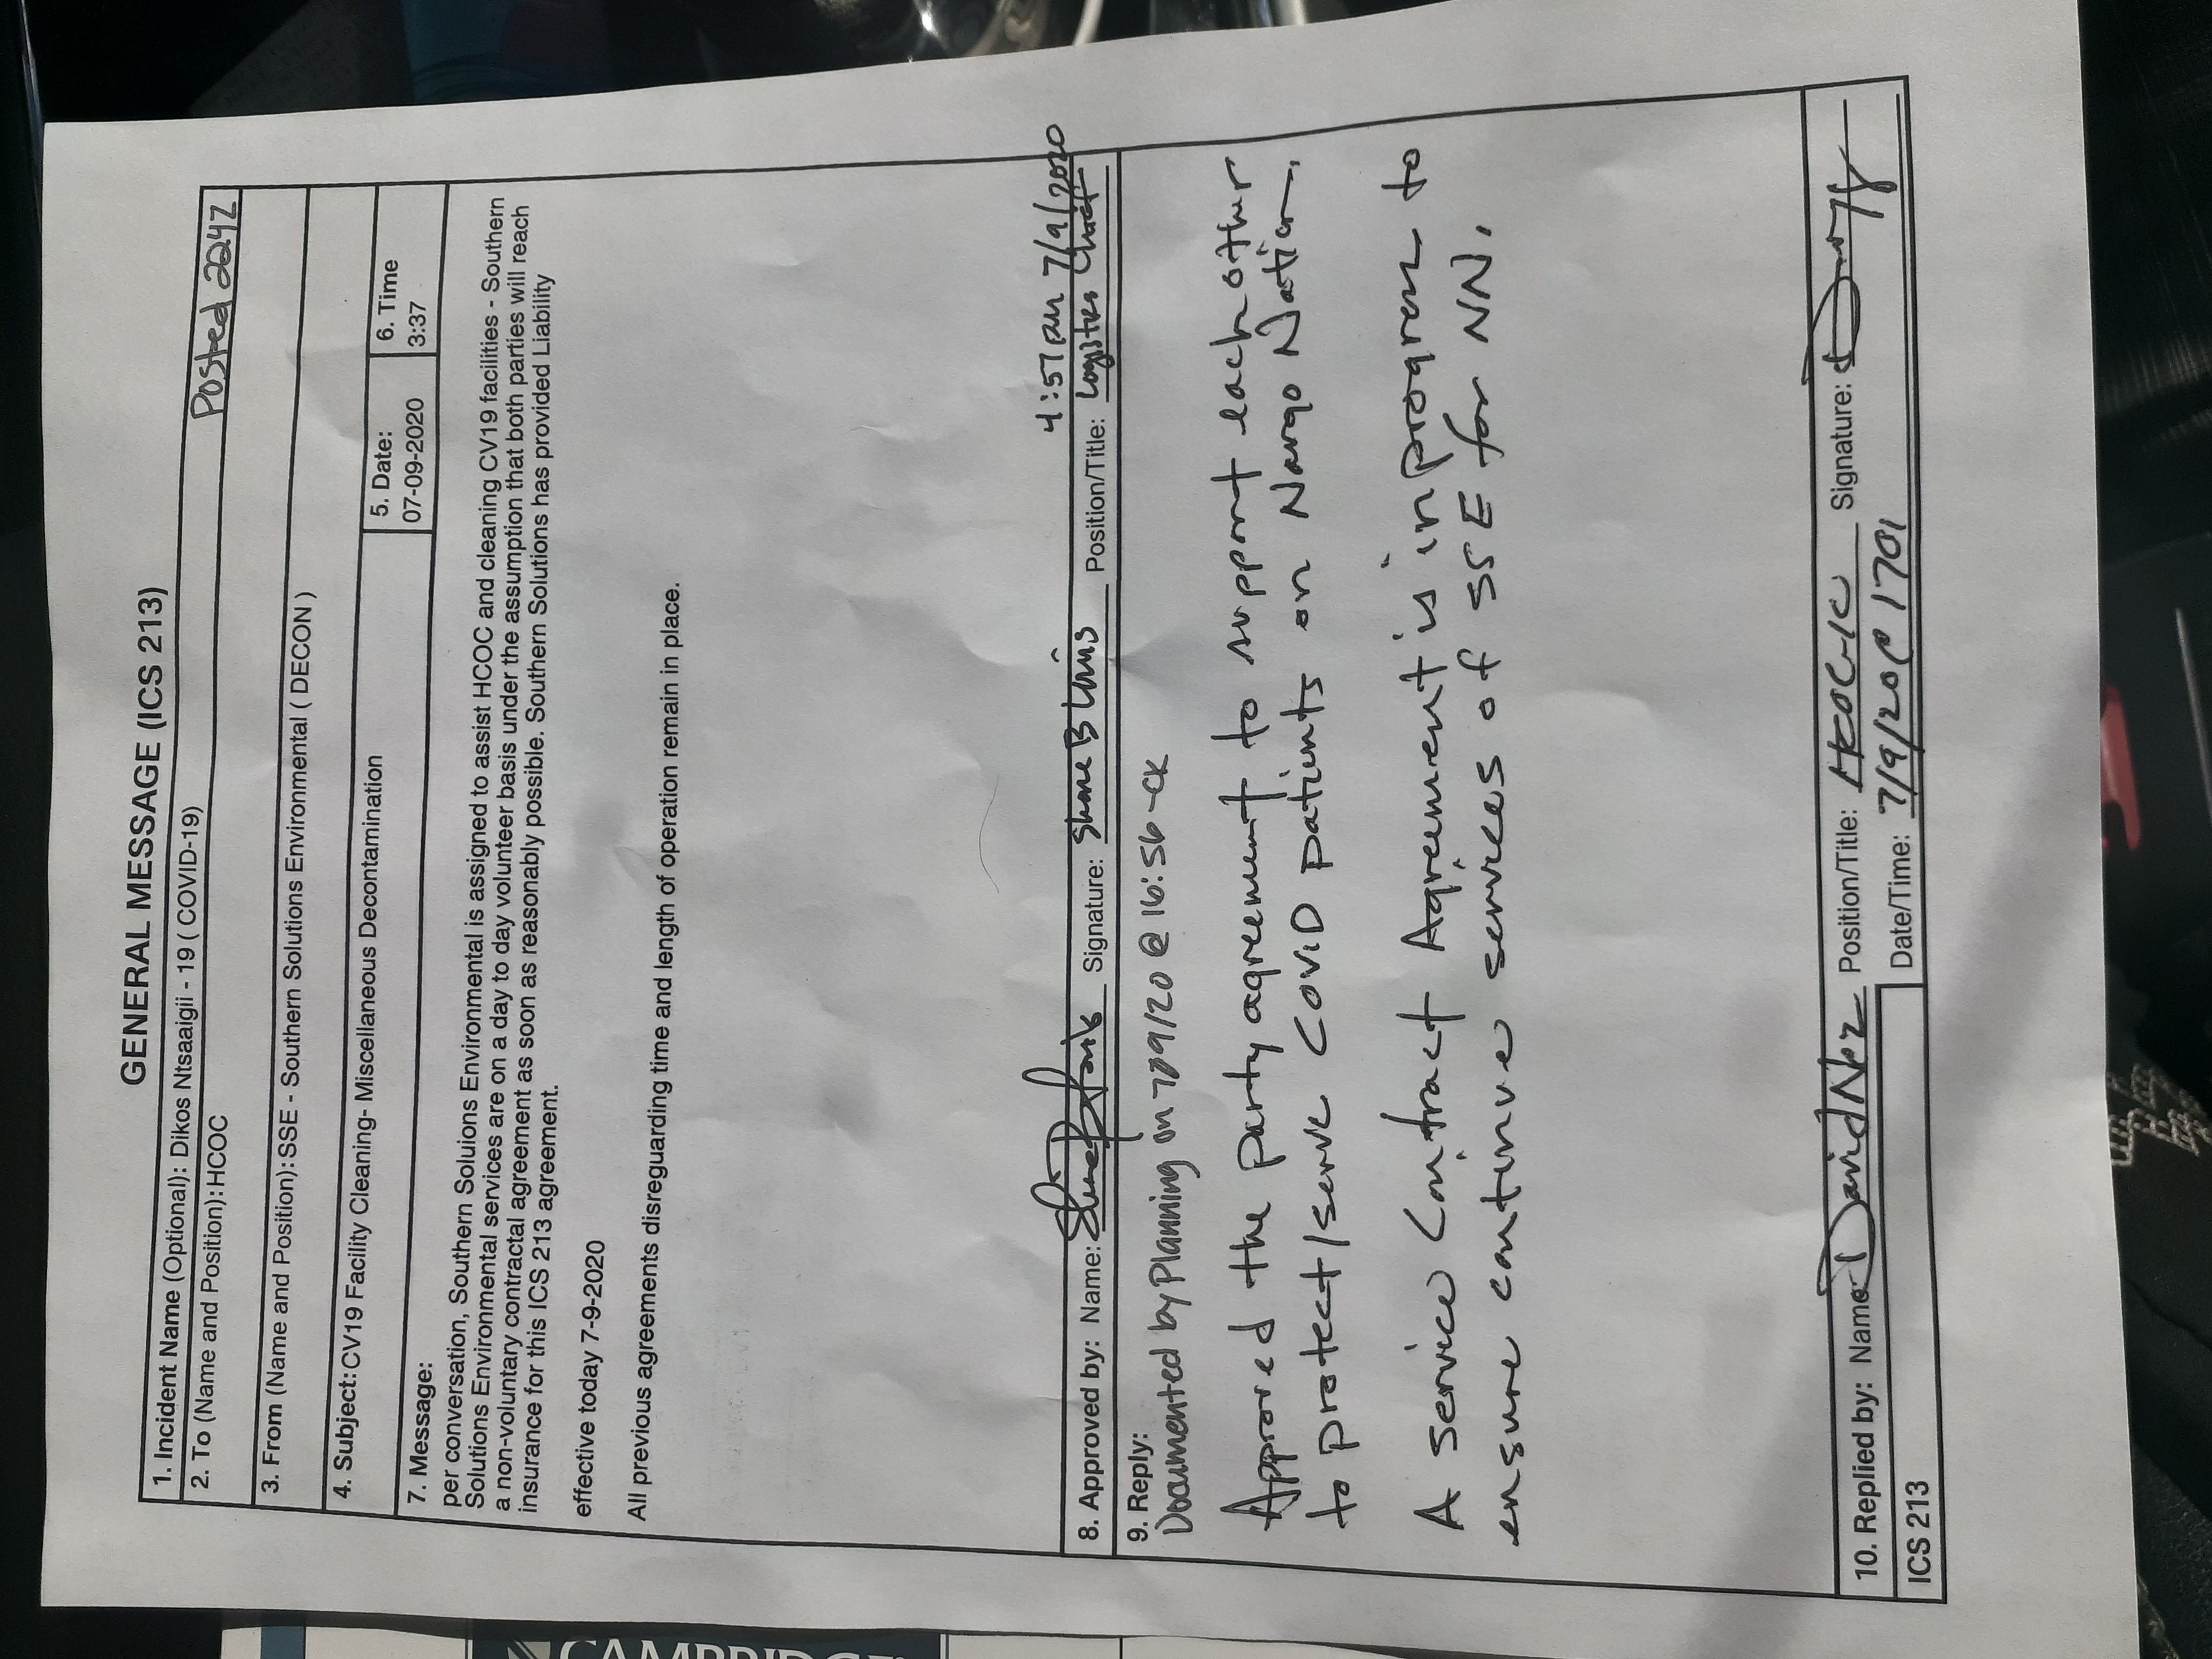 GENERAL MESSAGE (ICS 213)
1. Incident Name (Optional): Dikos Ntsaaigii - 19 ( COVID-19)
Posted 2242
2. To (Name and Position): HCOC
3. From (Name and Position): SSE - Southern Solutions Environmental ( DECON )
4. Subject: CV19 Facility Cleaning- Miscellaneous Decontamination
5. Date:
07-09-2020
6. Time
3:37
7. Message:
per conversation, Southern Soluions Environmental is assigned to assist HCOC and cleaning CV19 facilities - Southern
Solutions Environmental services are on a day to day volunteer basis under the assumption that both parties will reach
a non-voluntary contractal agreement as soon as reasonably possible. Southern Solutions has provided Liability
insurance for this ICS 213 agreement.
effective today 7-9-2020
All previous agreements disreguarding time and length of operation remain in place.
4:57 pm 7/9/2020
8. Approved by: Name: Signature: Shane B Position/Title: Logistics Chief
9. Reply:
Documented by Planning on 7/9/20 @ 16:56 -CK
Approved the party agreement to support each other
to protect/serve COVID patients on Navajo Nation.
A service Contract Agreement is in progress to
ensure continue services of SSE for NN.
10. Replied by: Name: David Nez Position/Title: HCOC-IC Signature:
Date/Time: 7/9/20 @ 1701
ICS 213
CAMBRIDGE